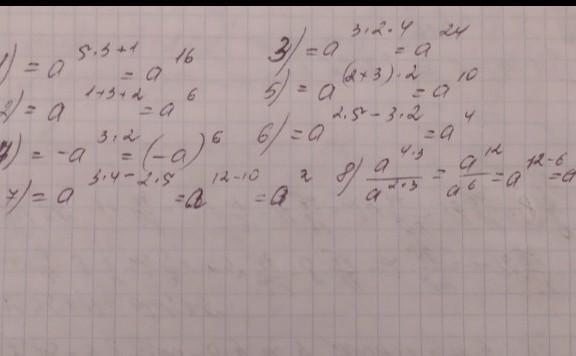 1) = a^{5·3+1} = a^{16}
3) = a^{3·2·4} = a^{24}
2) = a^{1+3+2} = a^6
5) = a^{(2+3)·2} = a^{10}
4) = -a^{3·2} = (-a)^6
6) = a^{2·5-3·2} = a^4
7) = a^{3·4-2·5} = a^{12-10} = a^2
8) \frac{a^{4·3}}{a^{2·3}} = \frac{a^{12}}{a^6} = a^{12-6} = a